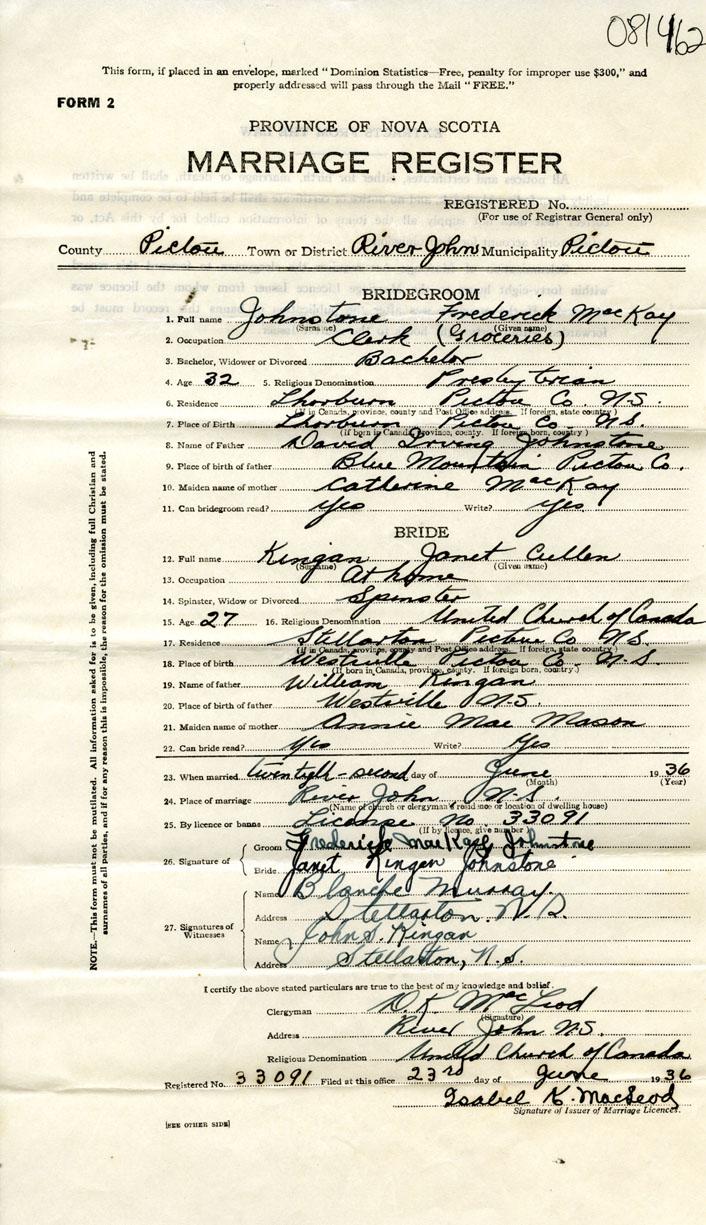 081462
This form, if placed in an envelope, marked "Dominion Statistics—Free, penalty for improper use $300," and
properly addressed will pass through the Mail "FREE."
FORM 2
PROVINCE OF NOVA SCOTIA
MARRIAGE REGISTER
REGISTERED No.
(For use of Registrar General only)
County Pictou Town or District River John Municipality Pictou
BRIDEGROOM
1. Full name Johnstone Frederick MacKay
(Surname) (Given name)
2. Occupation Clerk (Groceries)
3. Bachelor, Widower or Divorced Bachelor
4. Age 32 5. Religious Denomination Presbyterian
6. Residence Thorburn Pictou Co. N.S.
(If in Canada, province, county and Post Office address. If foreign, state country)
7. Place of Birth Thorburn Pictou Co. N.S.
(If born in Canada, province, county. If foreign born, country)
8. Name of Father David Irving Johnstone
9. Place of birth of father Blue Mountain Pictou Co.
10. Maiden name of mother Catherine MacKay
11. Can bridegroom read? Yes Write? Yes
BRIDE
12. Full name Kingan Janet Cullen
(Surname) (Given name)
13. Occupation At home
14. Spinster, Widow or Divorced Spinster
15. Age 27 16. Religious Denomination United Church of Canada
17. Residence Stellarton Pictou Co N.S.
(If in Canada, province, county and Post Office address. If foreign, state country)
18. Place of birth Westville Pictou Co. N.S.
(If born in Canada, province, county. If foreign born, country.)
19. Name of father William Kingan
20. Place of birth of father Westville N.S.
21. Maiden name of mother Annie Mae Mason
22. Can bride read? Yes Write? Yes
23. When married twenty-second day of June 1936
(Month) (Year)
24. Place of marriage River John, N.S.
(Name of church or clergyman's residence or location of dwelling house)
25. By licence or banns License No. 33091
(If by licence, give number)
26. Signature of Groom Frederick MacKay Johnstone
Bride Janet Kingan Johnstone
27. Signatures of Witnesses
Name Blanche Murray.
Address Stellarton. N.S.
Name John S. Kingan
Address Stellarton, N.S.
I certify the above stated particulars are true to the best of my knowledge and belief.
Clergyman D. K. MacLeod
(Signature)
Address River John N.S.
Religious Denomination United Church of Canada
Registered No. 33091 Filed at this office 23rd day of June 1936
Isabel K. MacLeod
Signature of Issuer of Marriage Licences.
[SEE OTHER SIDE]
NOTE.—This form must not be mutilated. All information asked for is to be given, including full Christian and
surnames of all parties, and if for any reason this is impossible, the reason for the omission must be stated.